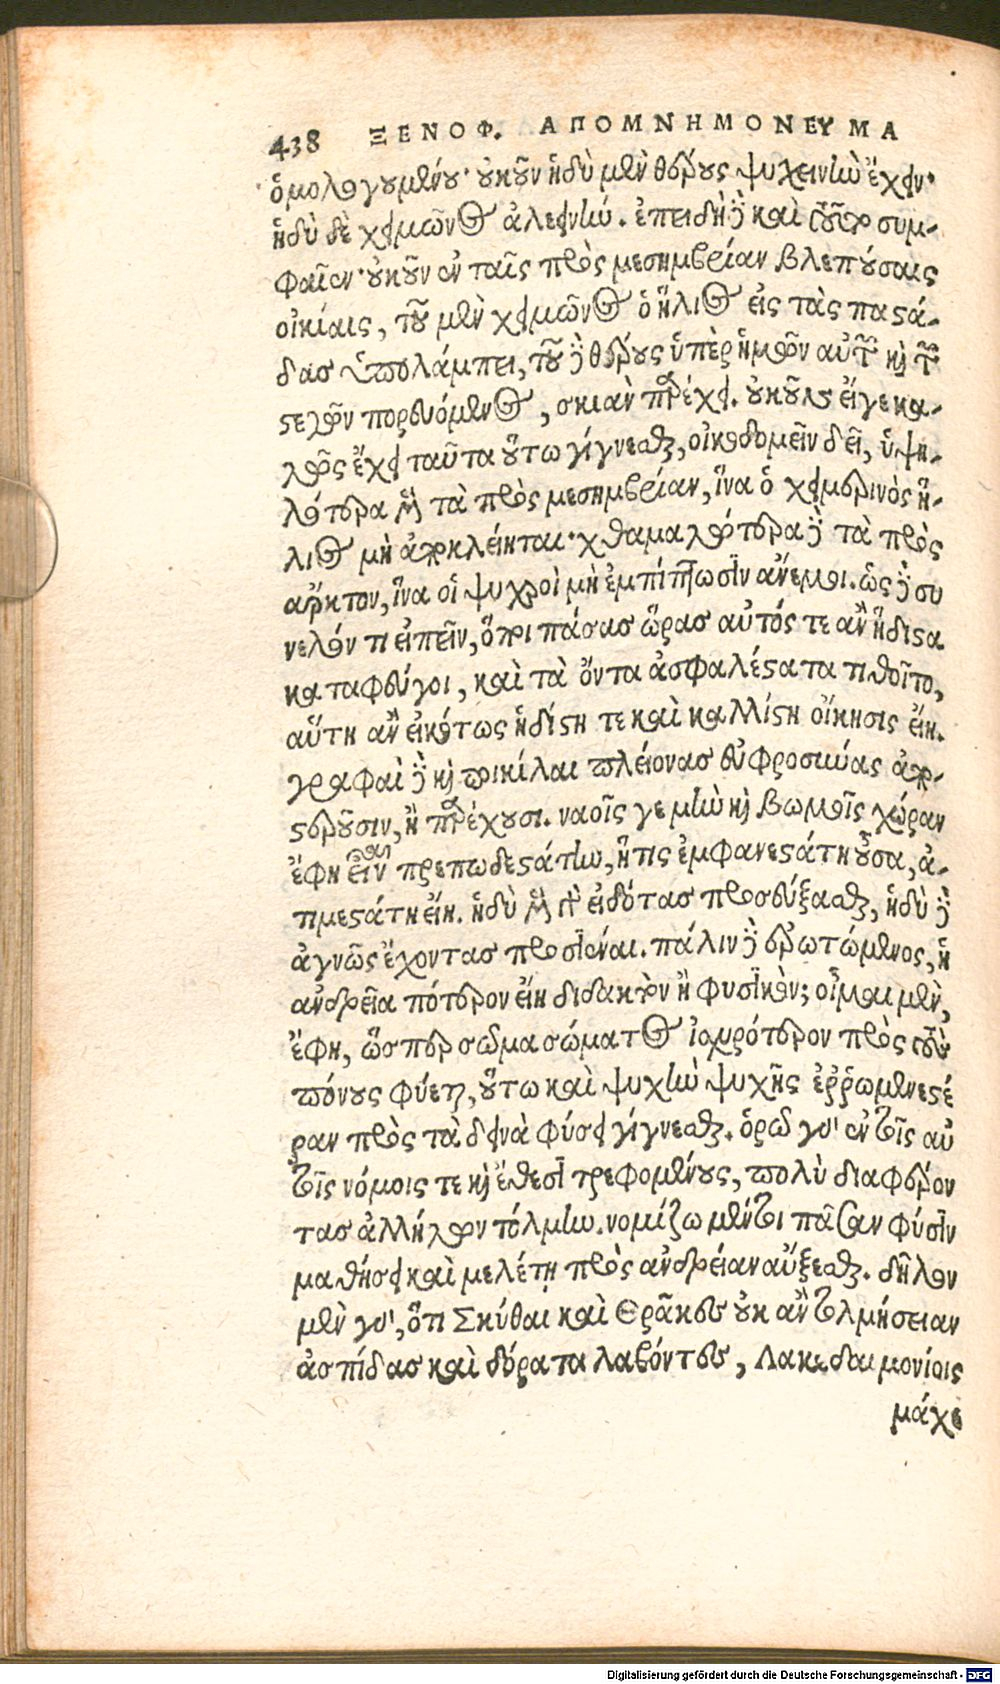 438 ΞΕΝΟΦ. ΑΠΟΜΝΗΜΟΝΕΥΜΑ
ὁμολογουμένου· οὐκοῦν ἡδὺ μὲν θέρους ψυχεινὴν ἔχειν·
ἡδὺ δὲ χειμῶνος ἀλεεινήν. ἐπειδὴ δὲ καὶ τοῦτο συμ-
φαῖεν· οὐκοῦν ἐν ταῖς πρὸς μεσημβρίαν βλεπούσαις
οἰκίαις, τοῦ μὲν χειμῶνος ὁ ἥλιος εἰς τὰς παστά-
δας ὑπολάμπει, τοῦ δὲ θέρους ὑπὲρ ἡμῶν αὐτῶν καὶ τῶν
στεγῶν πορευόμενος, σκιὰν παρέχει. οὐκοῦν εἴγε κα-
λῶς ἔχει ταῦτα οὕτω γίγνεσθαι, οἰκοδομεῖν δεῖ, ὑψη-
λότερα μὲν τὰ πρὸς μεσημβρίαν, ἵνα ὁ χειμερινὸς ἥ-
λιος μὴ ἀποκλείηται· χθαμαλώτερα δὲ τὰ πρὸς
ἄρκτον, ἵνα οἱ ψυχροὶ μὴ ἐμπίπτωσιν ἄνεμοι. ὡς δὲ συ
νελόντι εἰπεῖν, ὅποι πάσας ὥρας αὐτός τε ἂν ἥδιστα
καταφεύγοι, καὶ τὰ ὄντα ἀσφαλέστατα τιθοῖτο,
αὕτη ἂν εἰκότως ἡδίστη τε καὶ καλλίστη οἴκησις εἴη.
γραφαὶ δὲ καὶ ποικίλαι πλείονας εὐφροσύνας ἀπο-
στεροῦσιν, ἢ παρέχουσι. ναοῖς γε μὴν καὶ βωμοῖς χώραν
ἔφη εἶναι πρεπωδεστάτην, ἥτις ἐμφανεστάτη οὖσα, ἀ-
τιμεστάτη εἴη. ἡδὺ μὲν γὰρ εἰδότας προσεύξασθαι, ἡδὺ δὲ
ἁγνῶς ἔχοντας προσιέναι. πάλιν δὲ ἐρωτώμενος, ἡ
ἀνδρεία πότερον εἴη διδακτὸν ἢ φυσικόν; οἶμαι μὲν,
ἔφη, ὥσπερ σῶμα σώματος ἰσχυρότερον πρὸς τοὺς
πόνους φύεται, οὕτω καὶ ψυχὴν ψυχῆς ἐῤῥωμενεστέ
ραν πρὸς τὰ δεινὰ φύσει γίγνεσθαι. ὁρῶ γὰρ ἐν τοῖς αὐ
τοῖς νόμοις τε καὶ ἔθεσι τρεφομένους, πολὺ διαφέρον
τας ἀλλήλων τόλμῃ. νομίζω μέντοι πᾶσαν φύσιν
μαθήσει καὶ μελέτῃ πρὸς ἀνδρείαν αὔξεσθαι. δῆλον
μὲν γὰρ, ὅτι Σκύθαι καὶ Θρᾷκες οὐκ ἂν τολμήσειαν
ἀσπίδας καὶ δόρατα λαβόντες, Λακεδαιμονίοις
μάχε
Digitalisierung gefördert durch die Deutsche Forschungsgemeinschaft - DFG